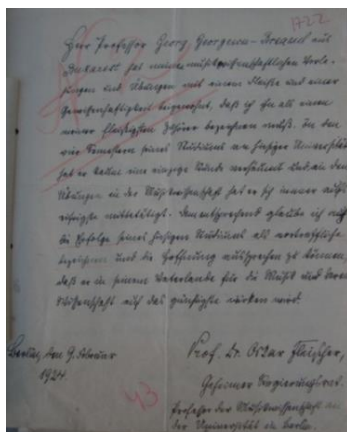 A22
Herr Professor Georg, Georgescu-Breazul aus
Bukarest hat meine musikwissenschaftlichen Vorle-
sungen und Übungen mit einem Fleiße und einer
Gewissenhaftigkeit beigewohnt, daß ich ihn als einen
meiner fleißigsten Hörer bezeichnen muß. In den
vier Semestern seines Studiums an hiesiger Universität
hat er kaum eine einzige Stunde versäumt und an den
Übungen in der Musikwissenschaft hat er sich immer aufs
eifrigste mitbetätigt. Dementsprechend glaube ich auch
die Erfolge seines hiesigen Studiums als vortreffliche
bezeichnen und die Hoffnung aussprechen zu können,
daß er in seinem Vaterlande für die Musik und deren
Wissenschaft auf das günstigste wirken wird.
Berlin, den 9. Februar
1924
Prof. Dr. Oskar Fleischer,
Geheimer Regierungsrat.
Professor der Musikwissenschaft an
der Universität in Berlin.
43